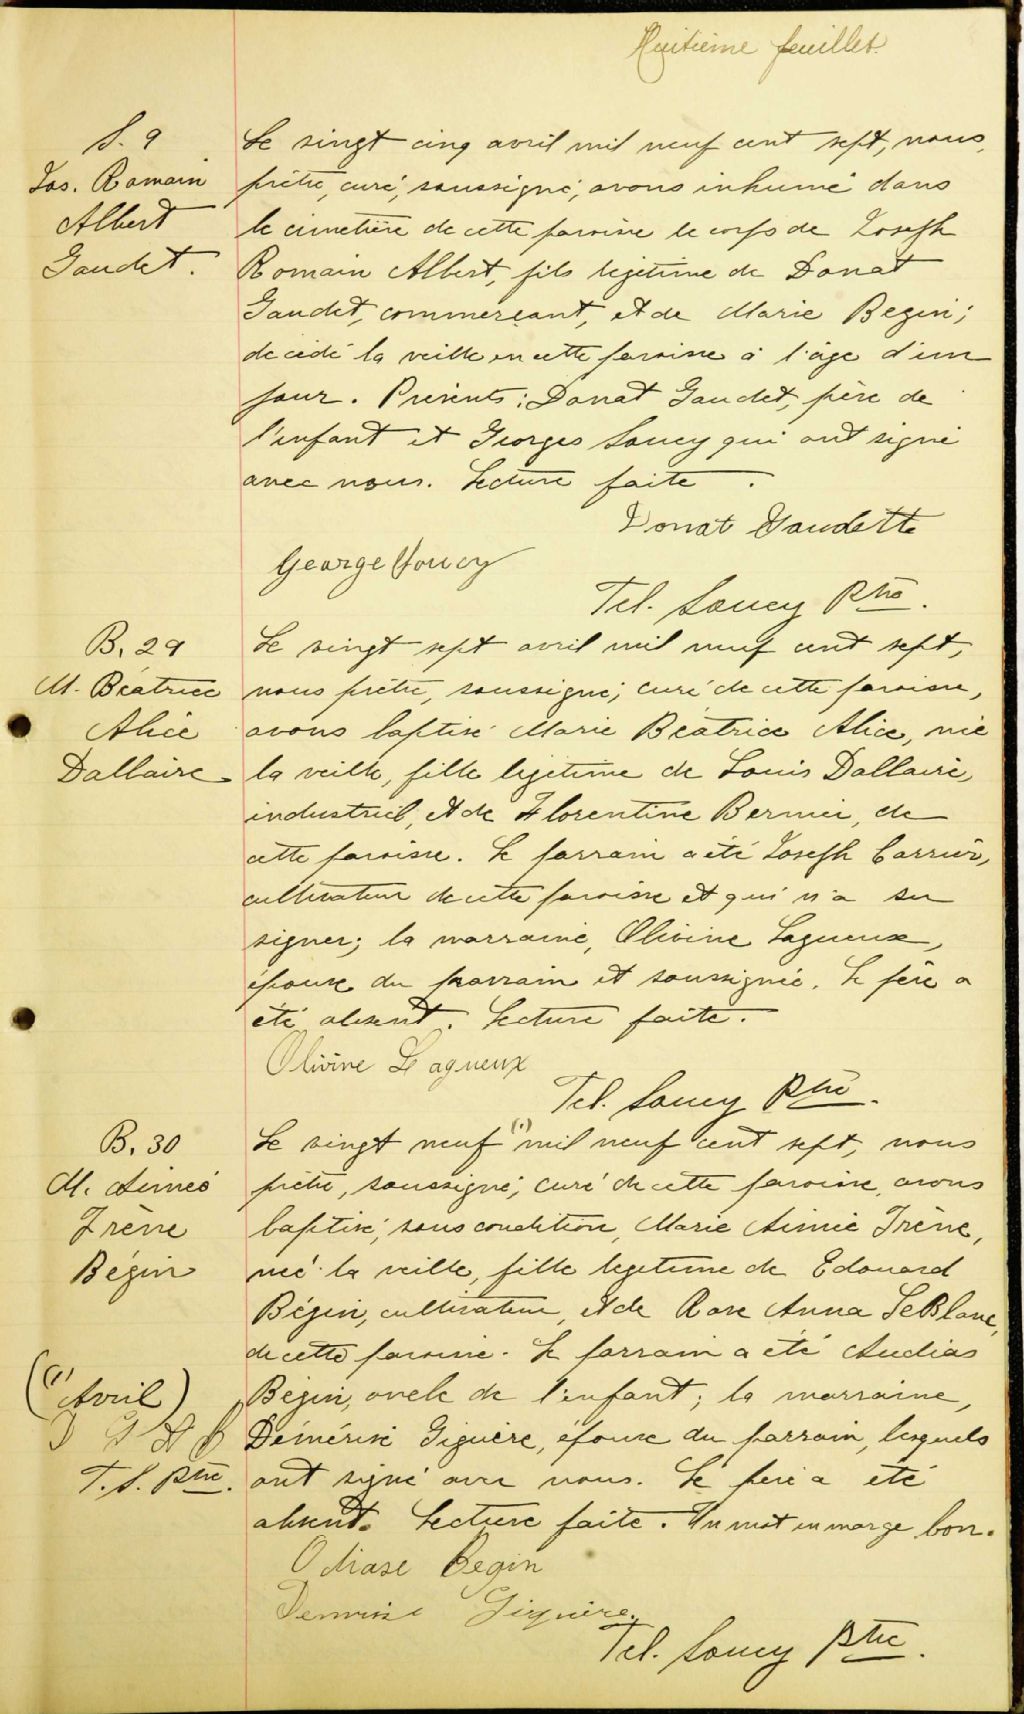 Huitième feuillet.
S. 9
Jos. Romain
Albert
Gaudet.
Le vingt cinq avril mil neuf cent sept, nous,
prêtre, curé, soussigné, avons inhumé dans
le cimetière de cette paroisse le corps de Joseph
Romain Albert, fils legitime de Donat
Gaudet, commerçant, et de Marie Begin;
decédé la veille en cette paroisse à l'âge d'un
jour. Présents: Donat Gaudet, père de
l'enfant et Georges Soucy qui ont signé
avec nous. Lecture faite.
Donat Gaudette
George Soucy
Tel. Soucy Ptre.
B. 29
M. Béatrice
Alice
Dallaire
Le vingt sept avril mil neuf cent sept,
nous prêtre, soussigné, curé de cette paroisse,
avons baptisé Marie Béatrice Alice, née
la veille, fille legitime de Louis Dallaire,
industriel, et de Florentine Bernier, de
cette paroisse. Le parrain a été Joseph Carrier,
cultivateur de cette paroisse et qui n'a su
signer; la marraine, Olivine Lagueux,
épouse du parrain et soussignée. Le père a
été absent. Lecture faite.
Olivine Lagueux
Tel. Soucy Ptre.
B. 30
M. Aimée
Irène
Bégin
Le vingt neuf (1) mil neuf cent sept, nous
prêtre, soussigné, curé de cette paroisse, avons
baptisé, sous condition, Marie Aimée Irène,
née la veille, fille legitime de Edouard
Bégin, cultivateur, et de Rose Anna LeBlanc,
de cette paroisse. Le parrain a été Audias
Bégin, oncle de l'enfant; la marraine,
Démérise Giguère, épouse du parrain, lesquels
ont signé avec nous. Le père a été
absent. Lecture faite. Un mot en marge bon.
((1) Avril)
D G A B
T. S. Ptre.
Odiase Begin
Demerise Giguère.
Tel. Soucy Ptre.